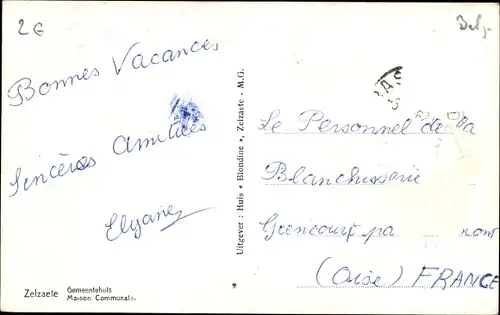 2 €
Belg.
Bonnes Vacances
Sincères Amitiés
Elyane
Zelzaete Gemeentehuis
Maison Communale.
Uitgever : Huis « Blondine », Zelzaete - M.G.
Le Personnel de la
Blanchisserie
pa
(Oise) FRANCE